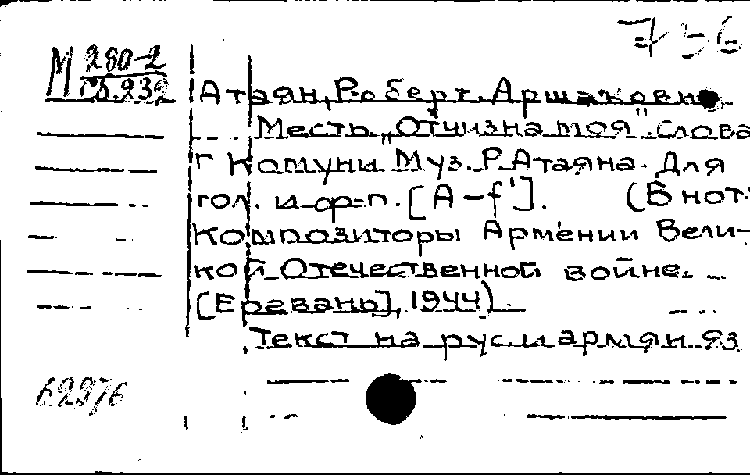 756
М 280-2
сб.232
Атаян, Роберт Аршакович
Месть. „Отчизна моя". Слова
Г Комуни Муз. Р. Атаяна. Для
гол. и ф-п. [A-f']. (В нот:
Композиторы Армении Вели-
кой Отечественной войне.
[Еревань], 1944).
Текст на рус. и армян. яз
62976